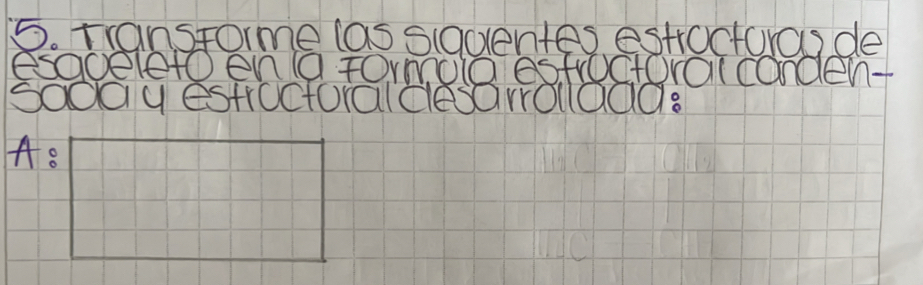 5. Transforme las siguientes estructuras de
esqueleto en la formula estructural conden-
sada y estructural desarrollada:
A: